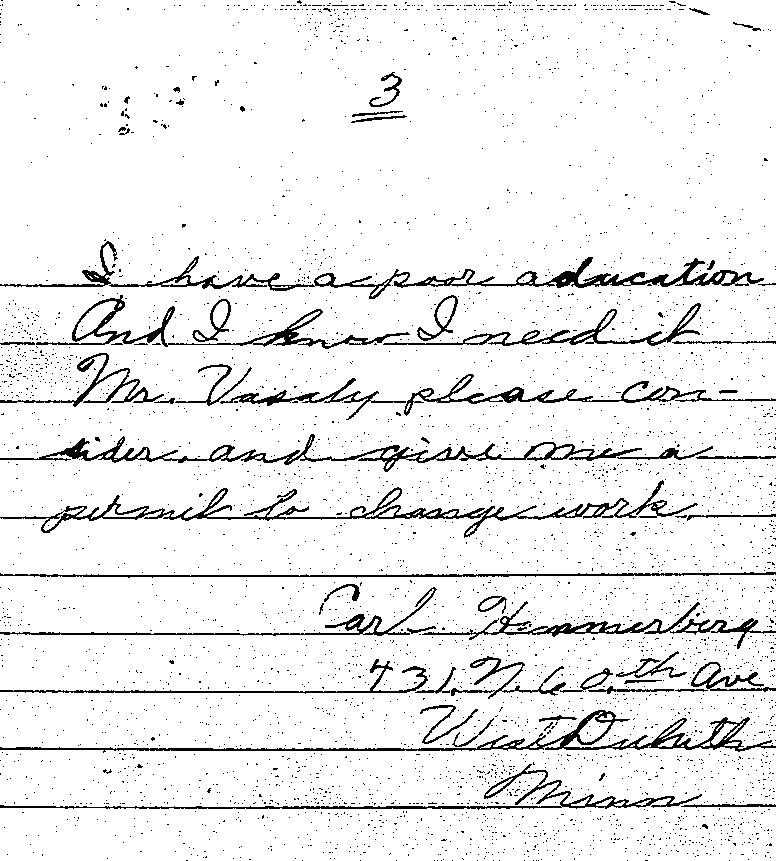 3
I have a poor aducation
And I know I need it
Mr. Vasaly please con-
sider. and give me a
permit to change work.
Carl Hammerberg
431. N. 60.th Ave.
West Duluth
Minn